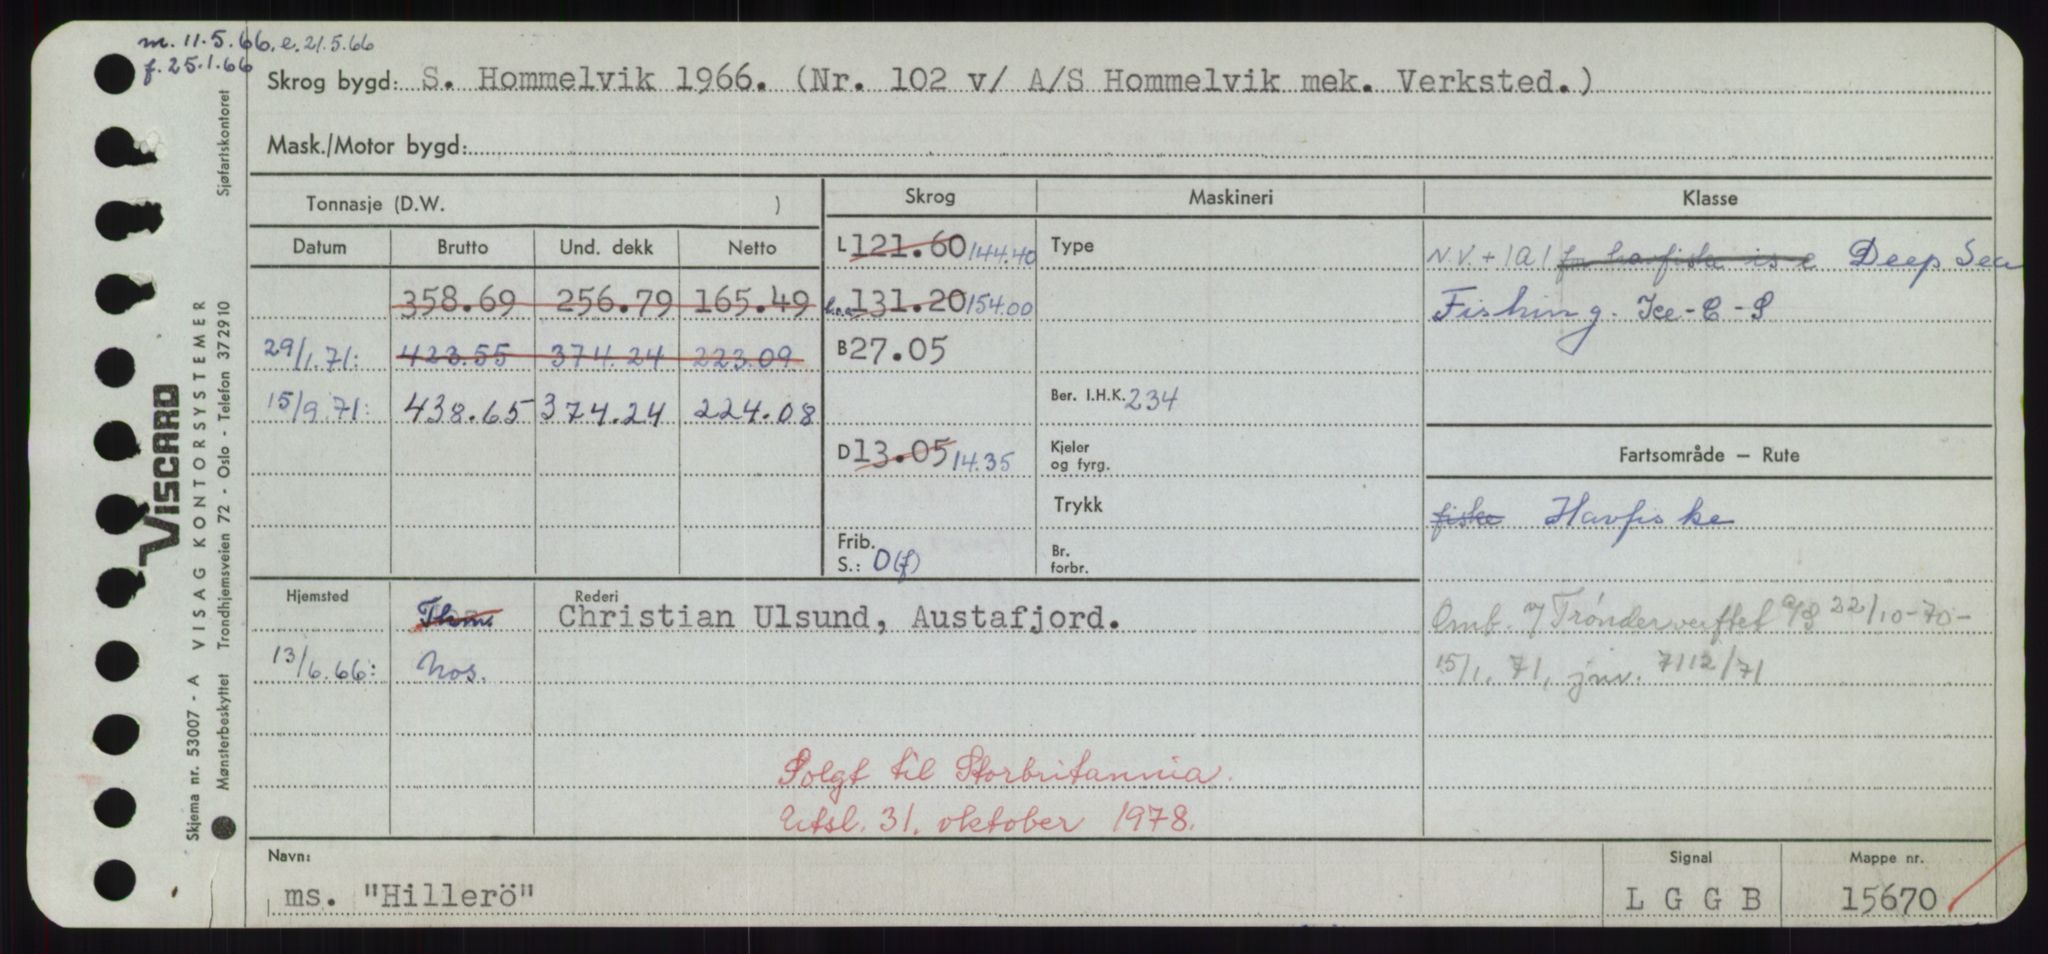 m. 11.5.66. e. 21.5.66
f. 25.1.66
Skrog bygd: S. Hommelvik 1966. (Nr. 102 v/ A/S Hommelvik mek. Verksted.)
Mask./Motor bygd:
Tonnasje (D.W. )
Skrog
Maskineri
Klasse
Datum Brutto Und. dekk Netto
358.69 256.79 165.49
29/1.71: 423.55 374.24 223.09
15/9.71: 438.65 374.24 224.08
L 121.60 144.40
L.o.a. 131.20 154.00
B 27.05
D 13.05 14.35
Frib.
S.: 0(f)
Type
Ber. I.H.K. 234
Kjeler
og fyrg.
Trykk
Br.
forbr.
N.V. + 1A1 for havfiske is c Deep Sea
Fishing. Ice-C - S
Fartsområde – Rute
fiske Havfiske
Omb. v/ Trønderverftet A/S 22/10-70-
15/1. 71, jnr. 7112/71
Hjemsted
13/6.66: Nos.
Rederi
Christian Ulsund, Austafjord.
Solgt til Storbritannia.
Utsl. 31. oktober 1978.
Navn:
ms. "Hillerö"
Signal
L G G B
Mappe nr.
15670
VISCARD
VISAG KONTORSYSTEMER
Skjema nr. 53007 - A
Mønsterbeskyttet Trondhjemsveien 72 - Oslo - Telefon 37 2910
Sjøfartskontoret